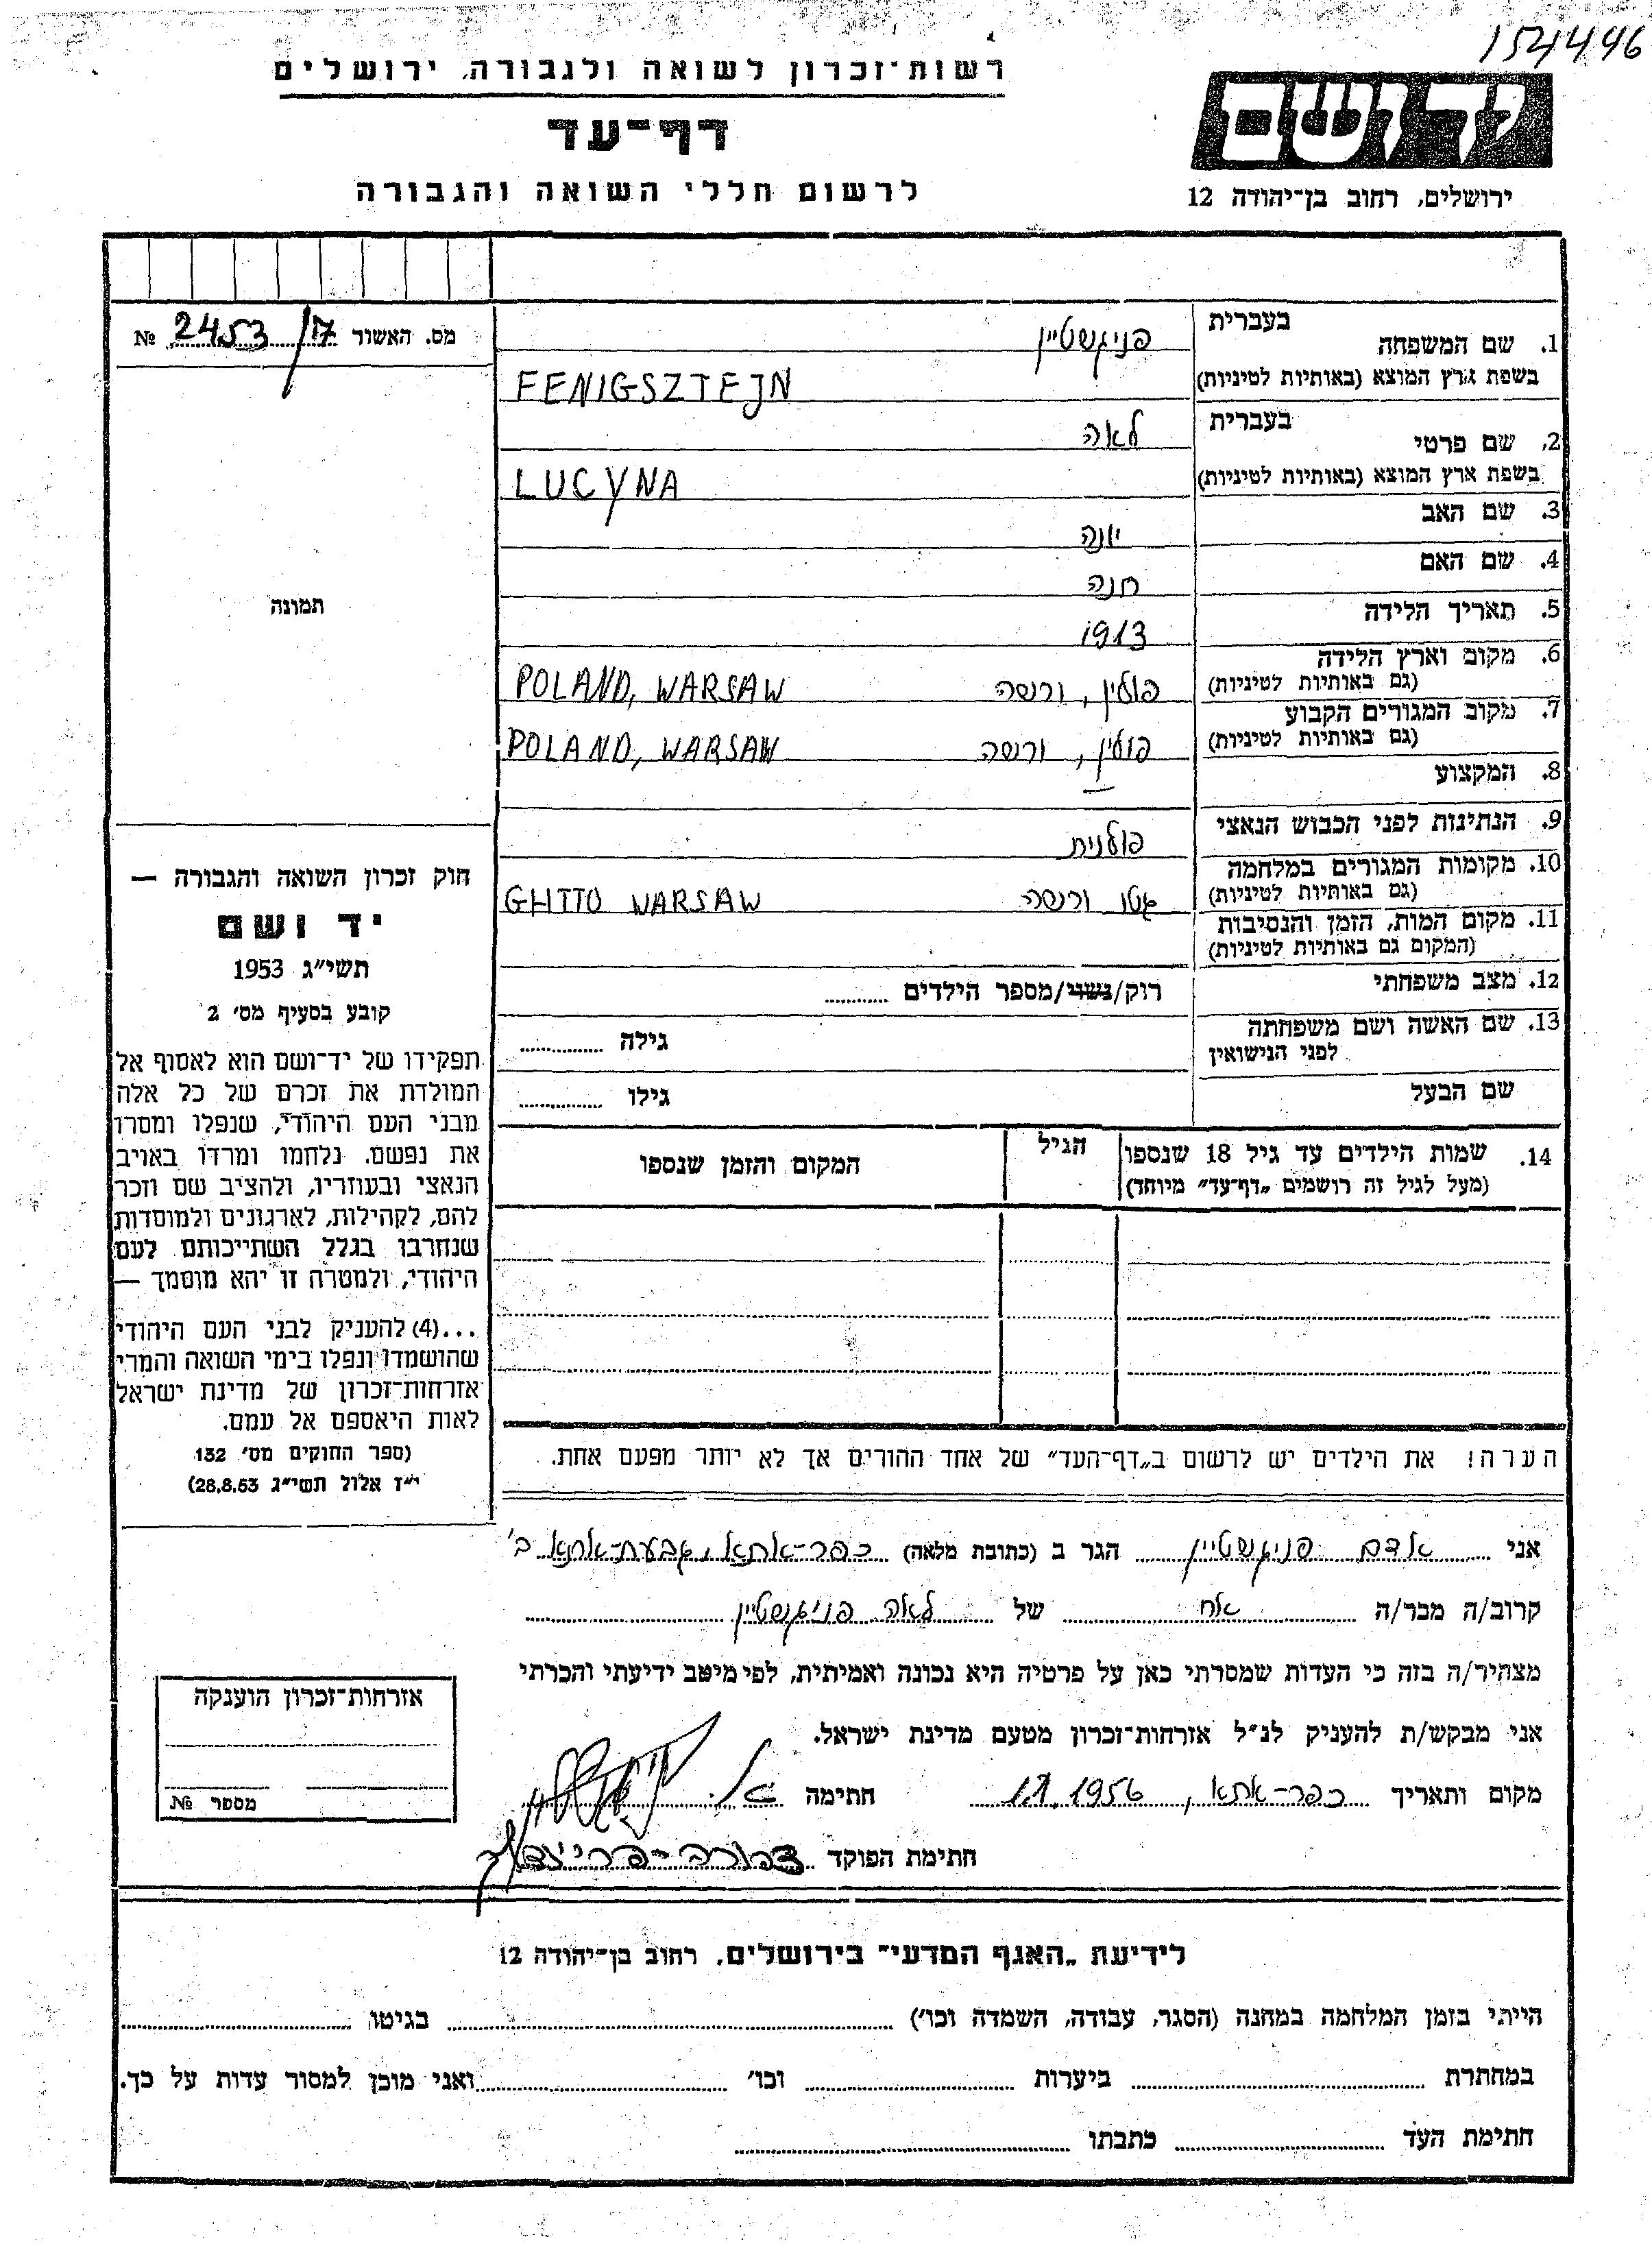 154446
רשות־זכרון לשואה ולגבורה, ירושלים
ידושם
דף־עד
לרשום חללי השואה והגבורה
ירושלים, רחוב בן־יהודה 12
מס. האשור 17/ 2453 №
בעברית
1. שם המשפחה פניגשטיין
בשפת ארץ המוצא (באותיות לטיניות) FENIGSZTEJN
בעברית
2. שם פרטי לאה
בשפת ארץ המוצא (באותיות לטיניות) LUCYNA
3. שם האב יונה
4. שם האם חנה
5. תאריך הלידה 1913
6. מקום וארץ הלידה
(גם באותיות לטיניות) פולין, ורשה POLAND, WARSAW
7. מקום המגורים הקבוע
(גם באותיות לטיניות) פולין, ורשה POLAND, WARSAW
8. המקצוע —
9. הנתינות לפני הכבוש הנאצי פולנית
10. מקומות המגורים במלחמה
(גם באותיות לטיניות) גטו ורשה GHTTO WARSAW
11. מקום המות, הזמן והנסיבות
(המקום גם באותיות לטיניות)
12. מצב משפחתי רוק/נשוי/מספר הילדים ..........
13. שם האשה ושם משפחתה גילה ..........
לפני הנישואין
שם הבעל גילו ..........
14. שמות הילדים עד גיל 18 שנספו הגיל המקום והזמן שנספו
(מעל לגיל זה רושמים „דף־עד” מיוחד)
תמונה
חוק זכרון השואה והגבורה —
יד ושם
תשי״ג 1953
קובע בסעיף מס׳ 2
תפקידו של יד־ושם הוא לאסוף אל
המולדת את זכרם של כל אלה
מבני העם היהודי, שנפלו ומסרו
את נפשם, נלחמו ומרדו באויב
הנאצי ובעוזריו, ולהציב שם וזכר
להם, לקהילות, לארגונים ולמוסדות
שנחרבו בגלל השתייכותם לעם
היהודי, ולמטרה זו יהא מוסמך —
...(4) להעניק לבני העם היהודי
שהושמדו ונפלו בימי השואה והמרי
אזרחות־זכרון של מדינת ישראל
לאות היאספם אל עמם.
(ספר החוקים מס׳ 132
י״ז אלול תשי״ג 28.8.53)
הערה! את הילדים יש לרשום ב„דף־העד” של אחד ההורים אך לא יותר מפעם אחת.
אני אדם פניגשטיין הגר ב (כתובת מלאה) כפר-אתא, גבעת-אתא ב'
קרוב/ה מכר/ה אח של לאה פניגשטיין
מצהיר/ה בזה כי העדות שמסרתי כאן על פרטיה היא נכונה ואמיתית, לפי מיטב ידיעתי והכרתי
אני מבקש/ת להעניק לנ״ל אזרחות־זכרון מטעם מדינת ישראל.
מקום ותאריך כפר-אתא, 1.1.1956 חתימה
חתימת הפוקד
אזרחות־זכרון הוענקה
מספר №
לידיעת „האגף המדעי” בירושלים, רחוב בן־יהודה 12
הייתי בזמן המלחמה במחנה (הסגר, עבודה, השמדה וכו׳) .......... בגיטו ..........
במחתרת .......... ביערות .......... וכו׳ .......... ואני מוכן למסור עדות על כך.
חתימת העד .......... כתבתו ..........